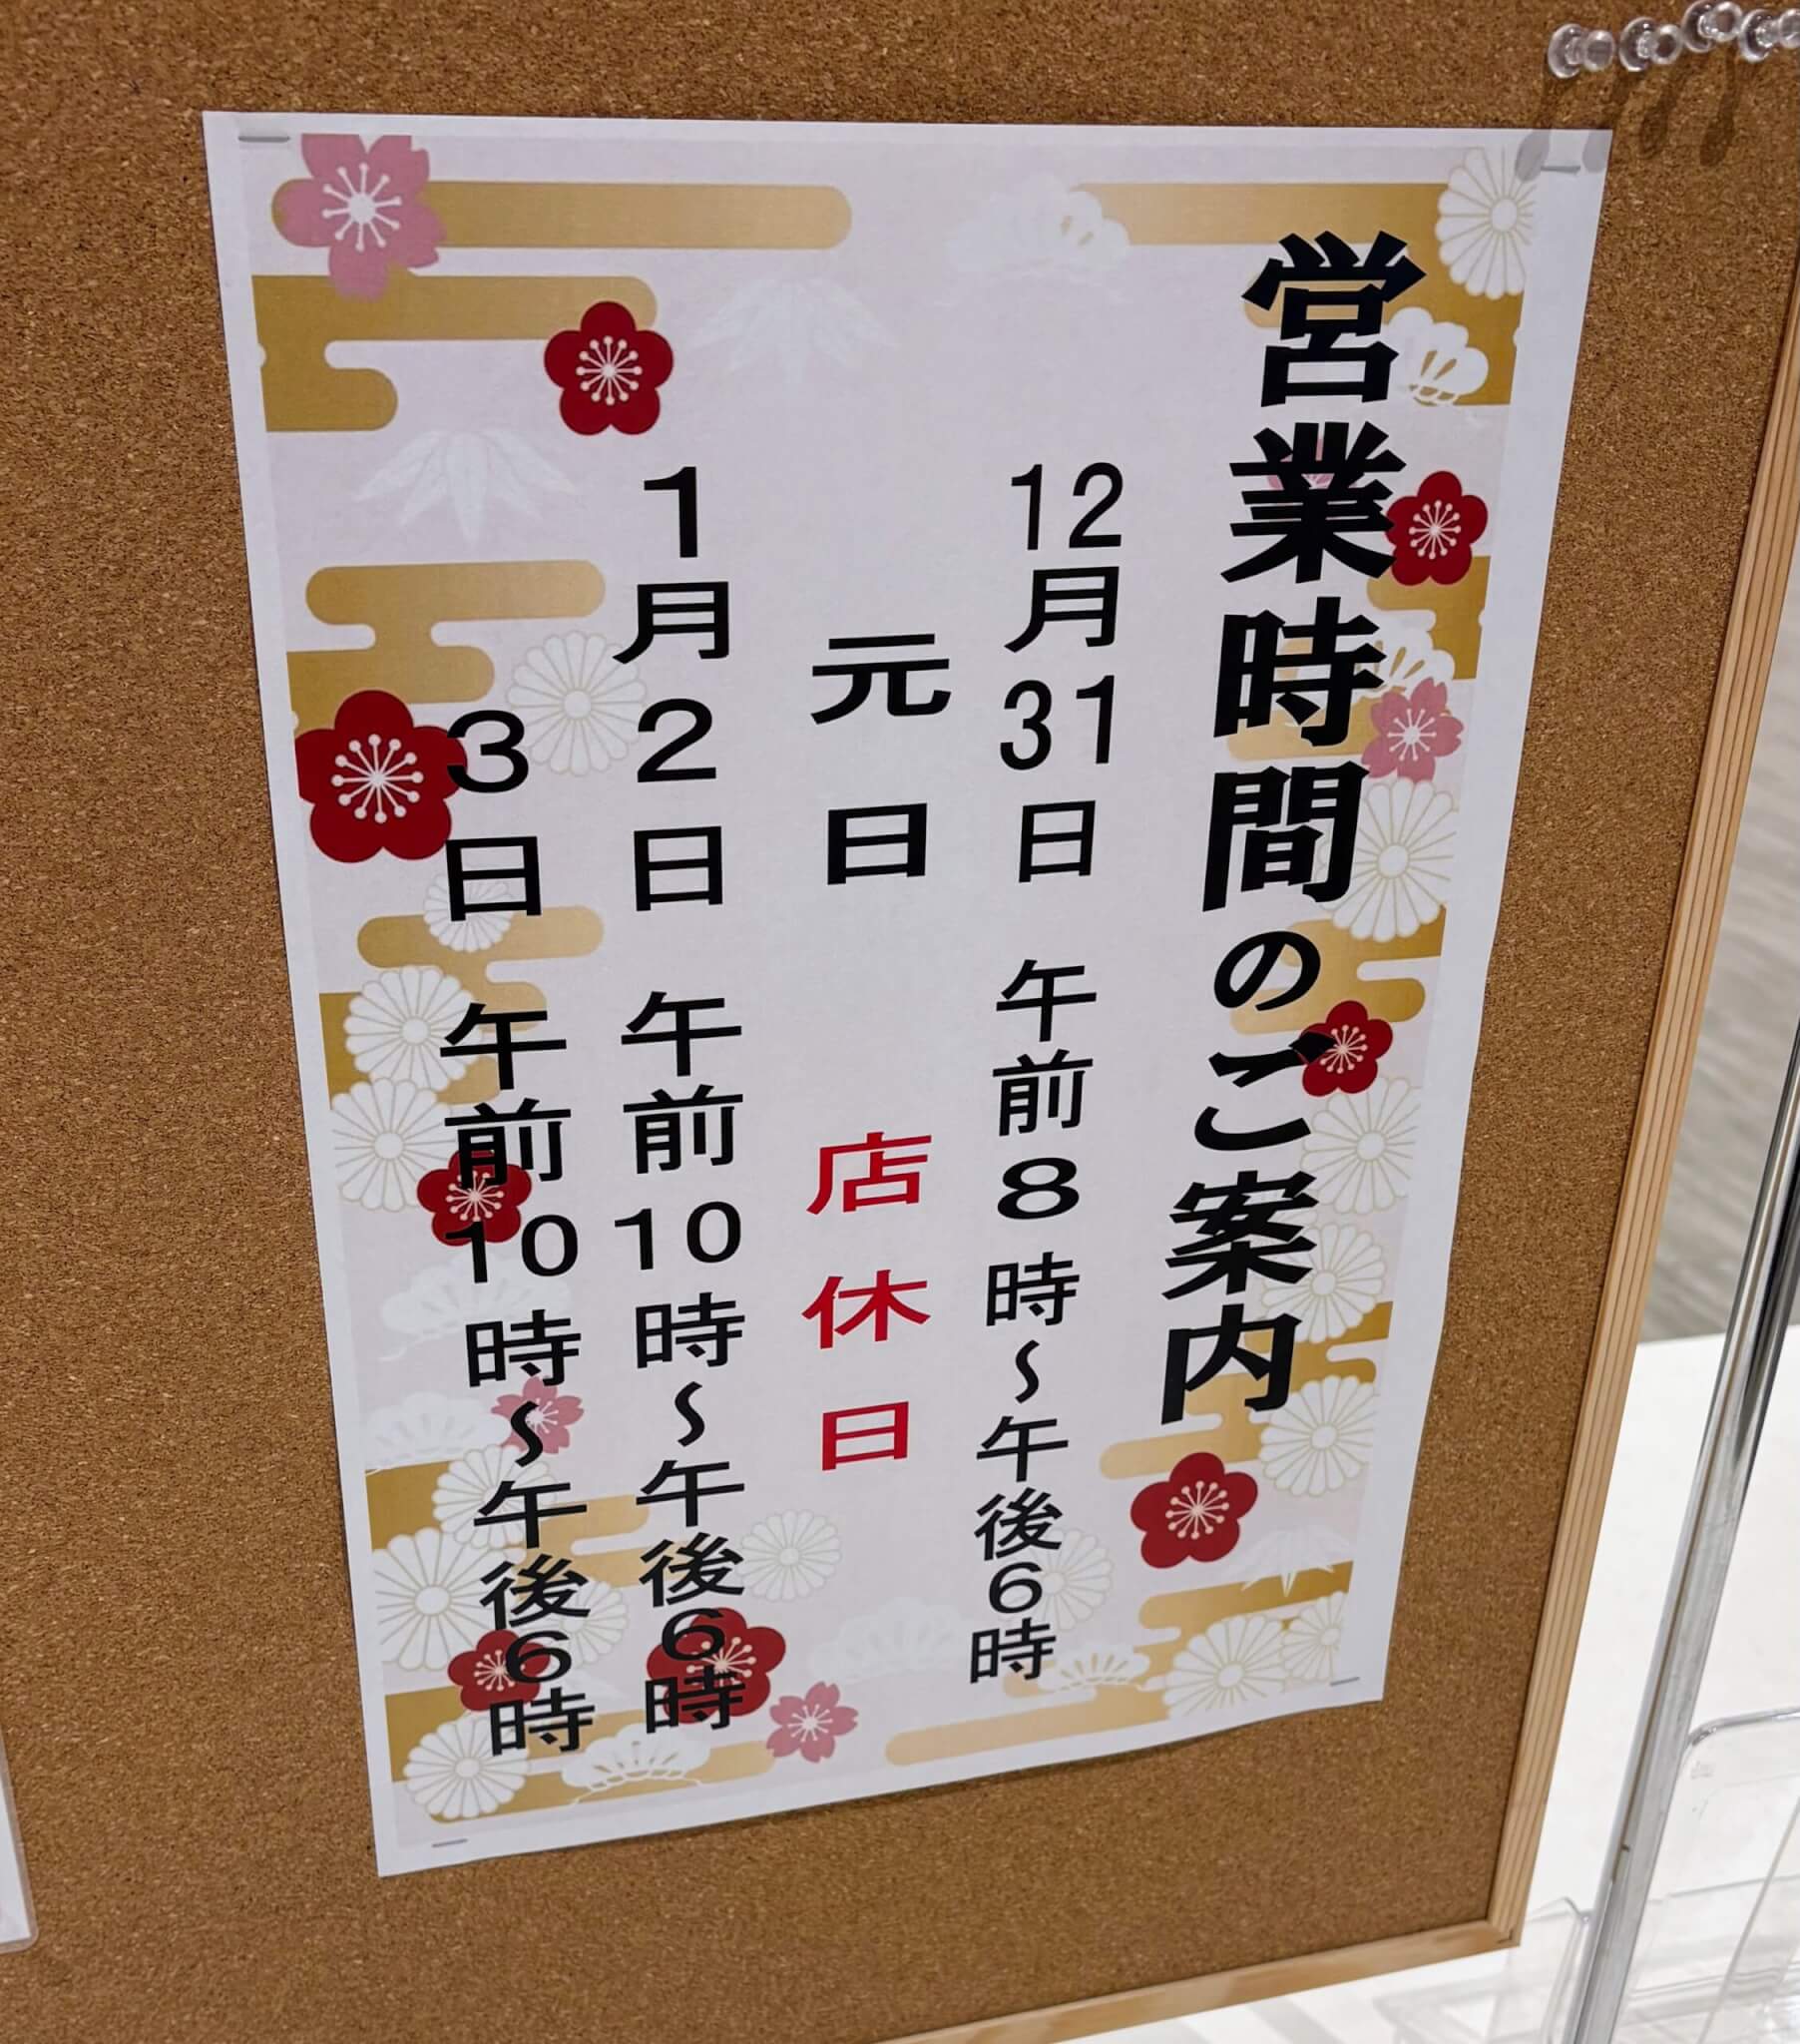 営業時間のご案内
12月31日 午前8時〜午後6時
元日 店休日
1月2日 午前10時〜午後6時
3日 午前10時〜午後6時